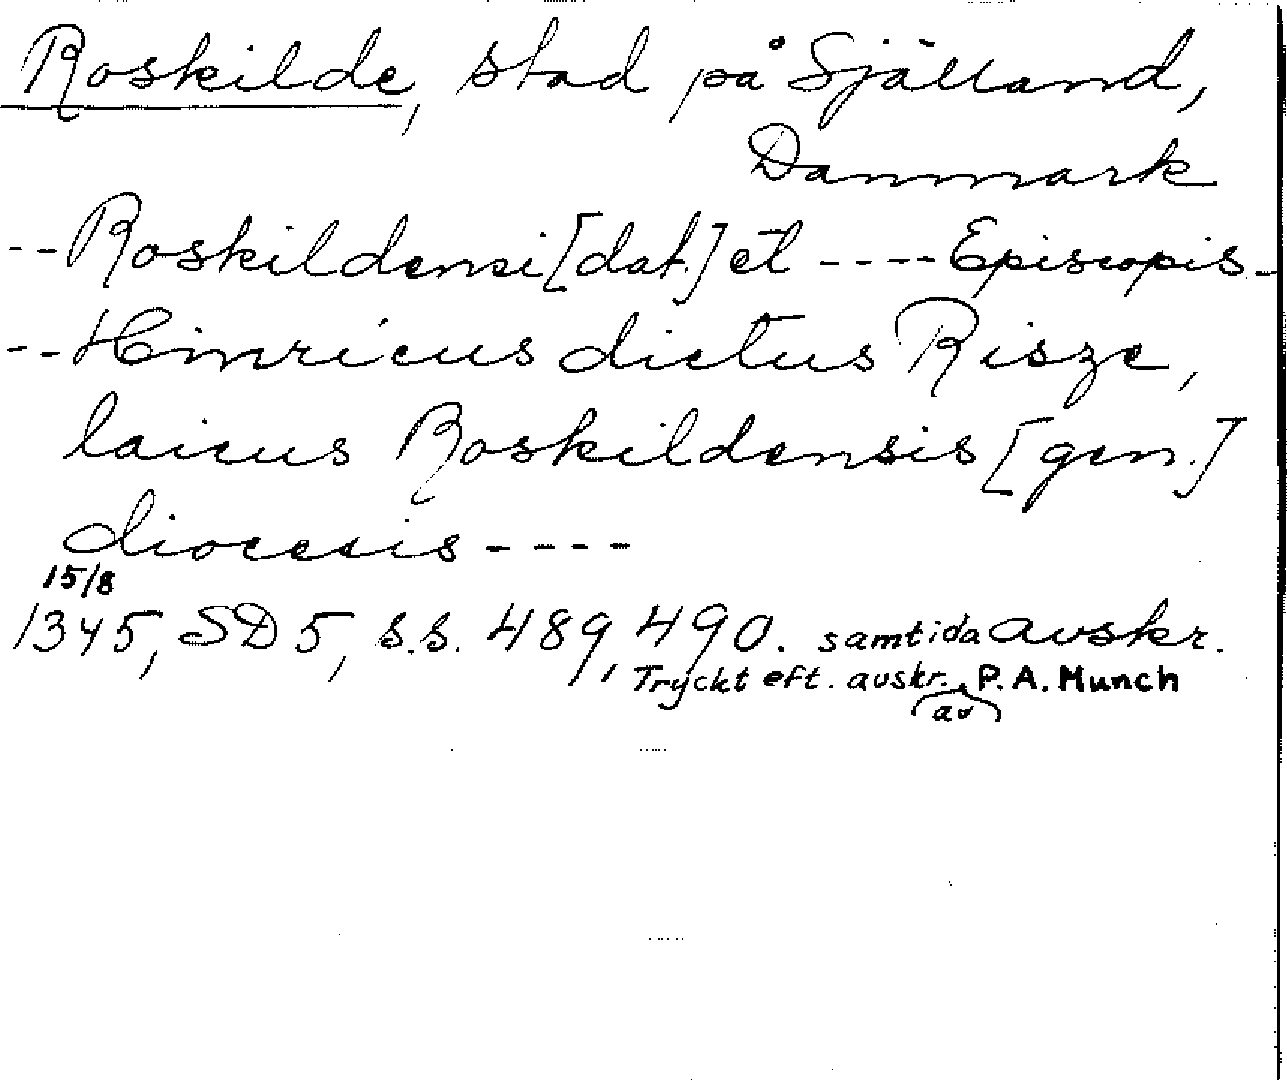 Roskilde, stad på Själland,
Danmark
--Roskildensi [dat.] et ---- Episcopis-
--Hinricus dictus Risze,
laicus Roskildensis [gen.]
diocesis ----
15/8
1345, SD 5, s.s. 489, 490. samtida avskr.
Tryckt eft. avskr. P.A. Munch
av